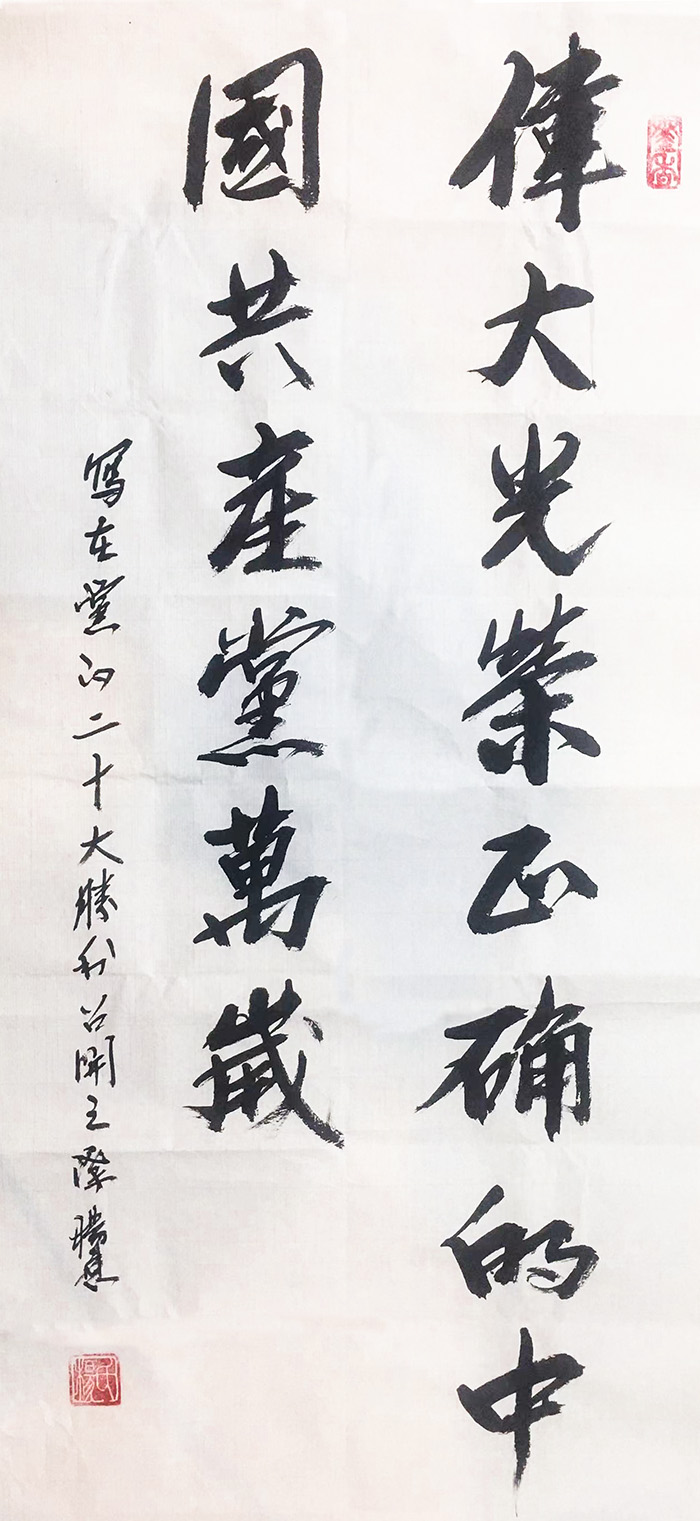 偉大光榮正确的中
國共産黨萬歲
冩在黨的二十大勝利召開之際
楊氏